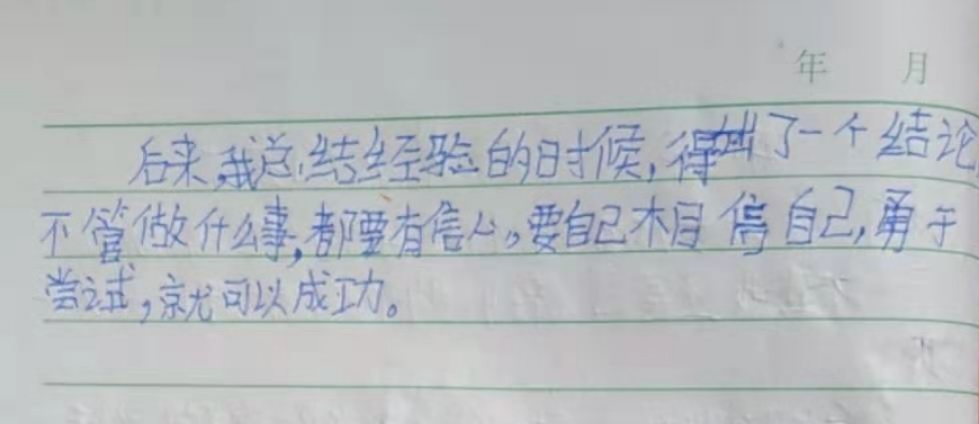 年 月
后来,我总结经验的时候,得出了一个结论,
不管做什么事,都要有信心,要自己相停自己,勇于
尝试,就可以成功。